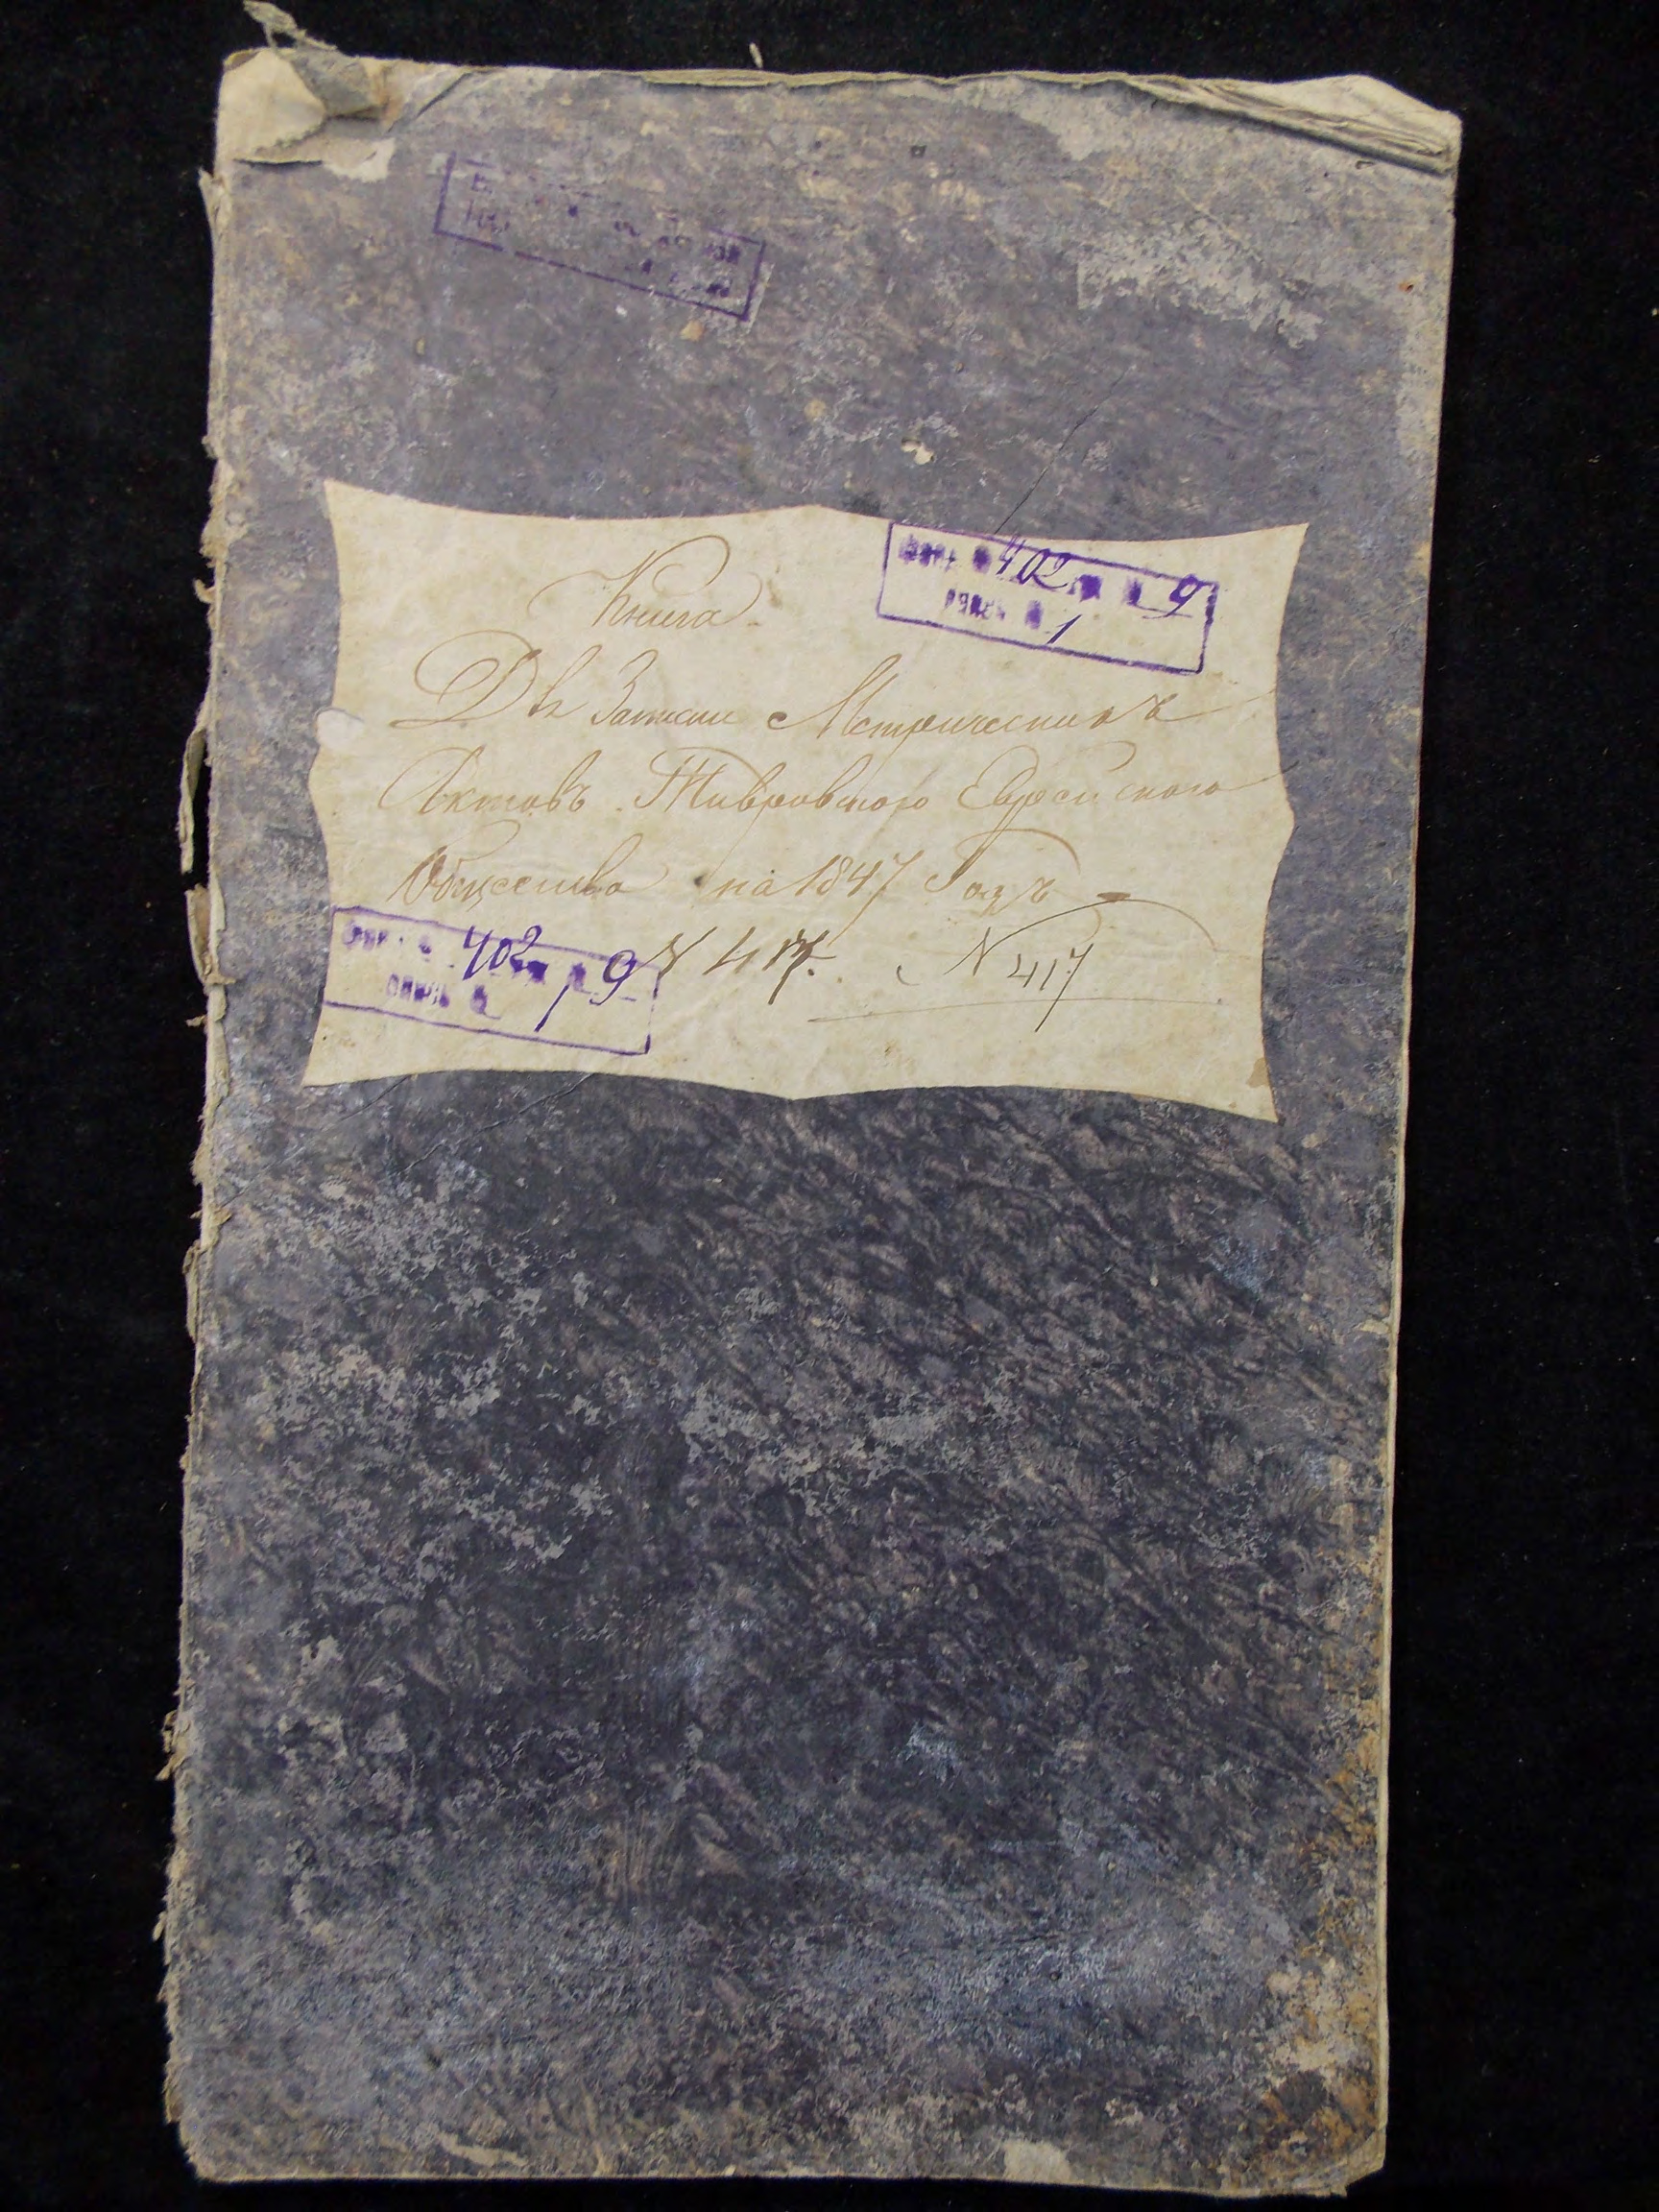 Книга.
Для Записи Метрическихъ
Актовъ Тывровского Еврейского
Общества на 1847 Годъ
фонд № 402 д. № 9
опись № 1
фонд № 402 д. № 9
опись № 1
N 417.
N 417